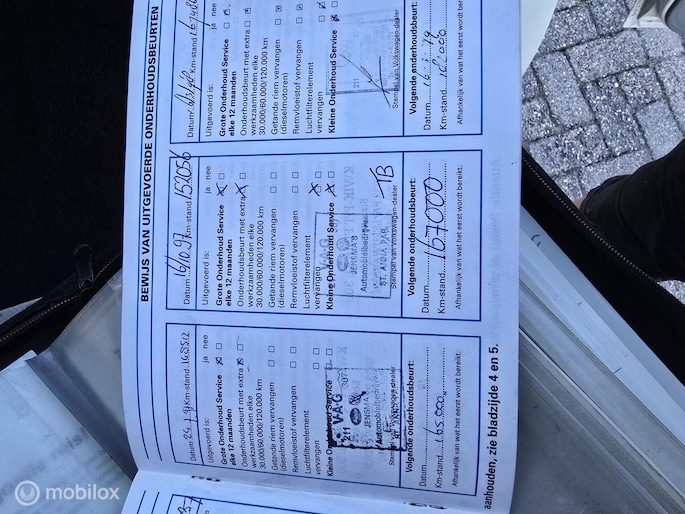 BEWIJS VAN UITGEVOERDE ONDERHOUDSBEURTEN
Datum Km-stand
Uitgevoerd is: ja nee
Grote Onderhoud Service
elke 12 maanden
Onderhoudsbeurt met extra
werkzaamheden elke
30.000/60.000/120.000 km
Getande riem vervangen
(dieselmotoren)
Remvloeistof vervangen
Luchtfilterelement
vervangen
Kleine Onderhoud Service
V·A·G
211
JENSMA'S
Automobielbedrijf
Stempel van Volkswagen-dealer
Volgende onderhoudsbeurt:
Datum
Km-stand 165.000
Afhankelijk van wat het eerst wordt bereikt.
Datum 16/10.97 Km-stand 152056
Uitgevoerd is: ja nee
Grote Onderhoud Service
elke 12 maanden
Onderhoudsbeurt met extra
werkzaamheden elke
30.000/60.000/120.000 km
Getande riem vervangen
(dieselmotoren)
Remvloeistof vervangen
Luchtfilterelement
vervangen
Kleine Onderhoud Service
V·A·G
JENSMA'S
Automobielbedrijf
ST. ANNA PAR.
TB
Stempel van Volkswagen-dealer
Volgende onderhoudsbeurt:
Datum
Km-stand 167000
Afhankelijk van wat het eerst wordt bereikt.
Datum Km-stand
Uitgevoerd is: ja nee
Grote Onderhoud Service
elke 12 maanden
Onderhoudsbeurt met extra
werkzaamheden elke
30.000/60.000/120.000 km
Getande riem vervangen
(dieselmotoren)
Remvloeistof vervangen
Luchtfilterelement
vervangen
Kleine Onderhoud Service
211
Stempel van Volkswagen-dealer
Volgende onderhoudsbeurt:
Datum
Km-stand
Afhankelijk van wat het eerst wordt bereikt.
aanhouden, zie bladzijde 4 en 5.
mobilox